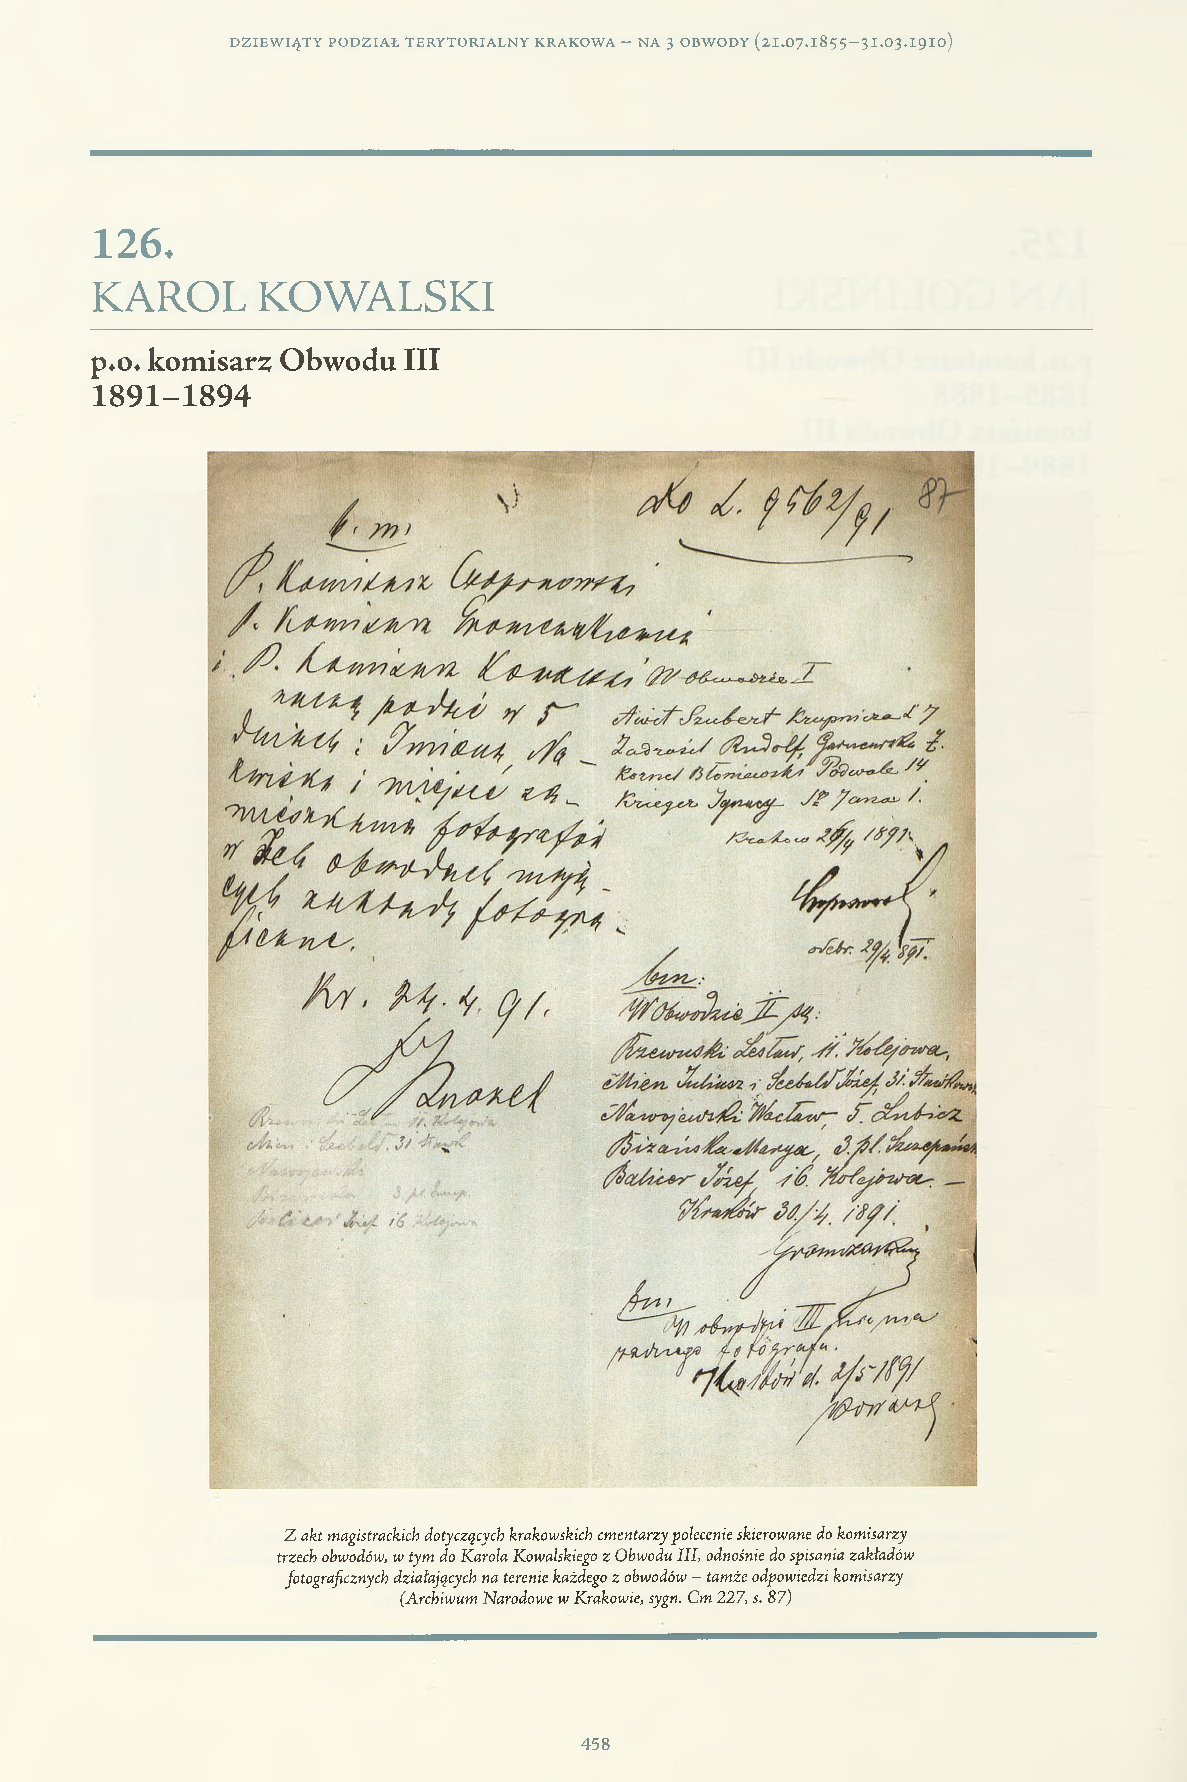 DZIEWIĄTY PODZIAŁ TERYTORIALNY KRAKOWA – NA 3 OBWODY (21.07.1855–31.03.1910)
126.
KAROL KOWALSKI
p.o. komisarz Obwodu III
1891–1894
do L. 9562/91
87
b. m.
P. Komisarz
P. Komisarz
i P. Komisarz Kowalski
raczą podać w 5
dniach: Imiona, Na-
zwiska i miejsce za-
mieszkania fotografów
w Ich obwodach mają-
cych zakłady fotogra-
ficzne.
Kr. 24. 4. 91.
Rzewuski 11. Kolejowa
Mien i Seebald. 31
Nawojewski
3. pl.
Balicer Józef 16 Kolejowa
W obwodzie I
Awit Szubert Krupnicza L 7
Zadrazil Rudolf, Garncarska 7.
Kornel Błoniewski Podwale 14
Krieger Ignacy Sgo Jana 1.
Krakow 28/4 1891.
odebr. 29/4. 891.
bm:
W Obwodzie II są:
Rzewuski Lesław, 11. Kolejowa,
Mien Juliusz i Seebald Józef, 31.
Nawojewski Wacław, 5. Lubicz
Bizańska Marya, 3. pl.
Balicer Józef, 16. Kolejowa. –
Kraków 30./4. 1891.
bm
W obwodzie III nie ma
żadnego fotografa.
Kraków d. 2/5 1891
Kowalski
Z akt magistrackich dotyczących krakowskich cmentarzy polecenie skierowane do komisarzy
trzech obwodów, w tym do Karola Kowalskiego z Obwodu III, odnośnie do spisania zakładów
fotograficznych działających na terenie każdego z obwodów – tamże odpowiedzi komisarzy
(Archiwum Narodowe w Krakowie, sygn. Cm 227, s. 87)
458